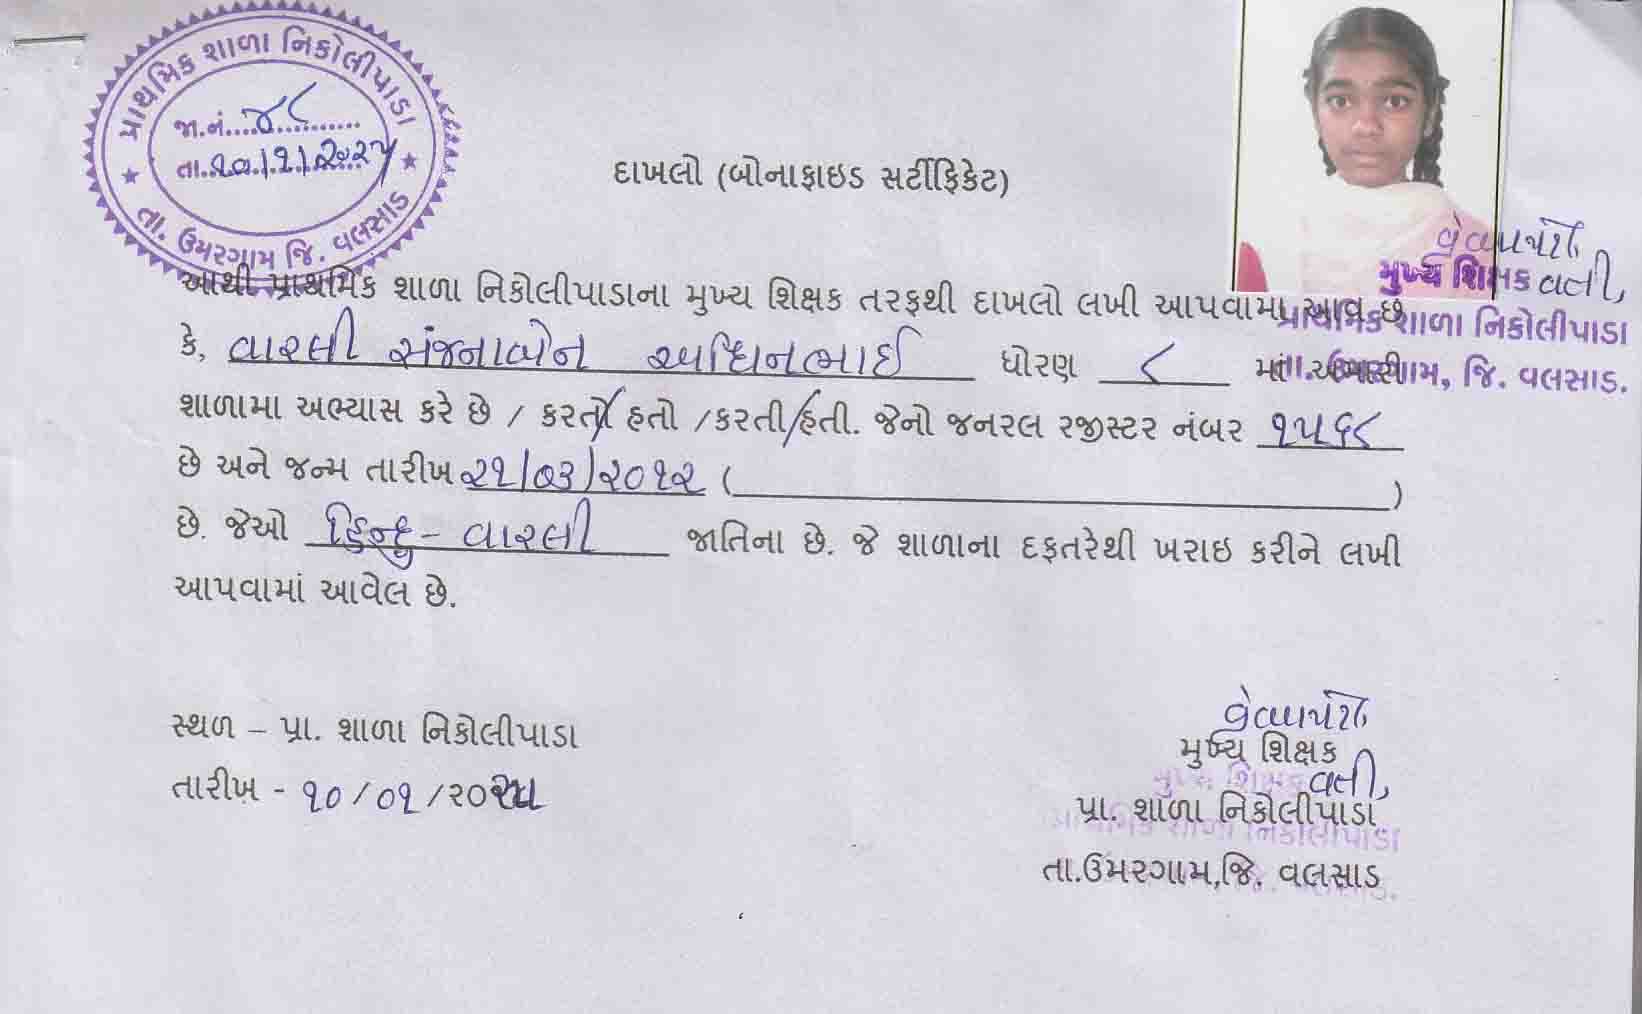 પ્રાથમિક શાળા નિકોલીપાડા
જા.નં. ૪૮
તા. ૧૦/૧/૨૦૨૫
તા. ઉમરગામ જિ. વલસાડ
દાખલો (બોનાફાઇડ સર્ટીફિકેટ)
મુખ્ય શિક્ષક વતી,
આથી પ્રાથમિક શાળા નિકોલીપાડાના મુખ્ય શિક્ષક તરફથી દાખલો લખી આપવામા આવે છે
પ્રાથમિક શાળા નિકોલીપાડા
કે, વારલી સંજનાબેન અશ્વિનભાઈ ધોરણ ૮ માં અમારી
તા. ઉમરગામ, જિ. વલસાડ.
શાળામા અભ્યાસ કરે છે / કરતો હતો /કરતી/હતી. જેનો જનરલ રજીસ્ટર નંબર ૧૫૬૮
છે અને જન્મ તારીખ ૨૧/૦૩/૨૦૧૨ ( )
છે. જેઓ હિન્દુ - વારલી જાતિના છે. જે શાળાના દફતરેથી ખરાઇ કરીને લખી
આપવામાં આવેલ છે.
સ્થળ – પ્રા. શાળા નિકોલીપાડા
તારીખ - ૧૦/૦૧/૨૦૨૫
મુખ્ય શિક્ષક
મુખ્ય શિક્ષક વતી,
પ્રા. શાળા નિકોલીપાડા
પ્રાથમિક શાળા નિકોલીપાડા
તા.ઉમરગામ,જિ. વલસાડ